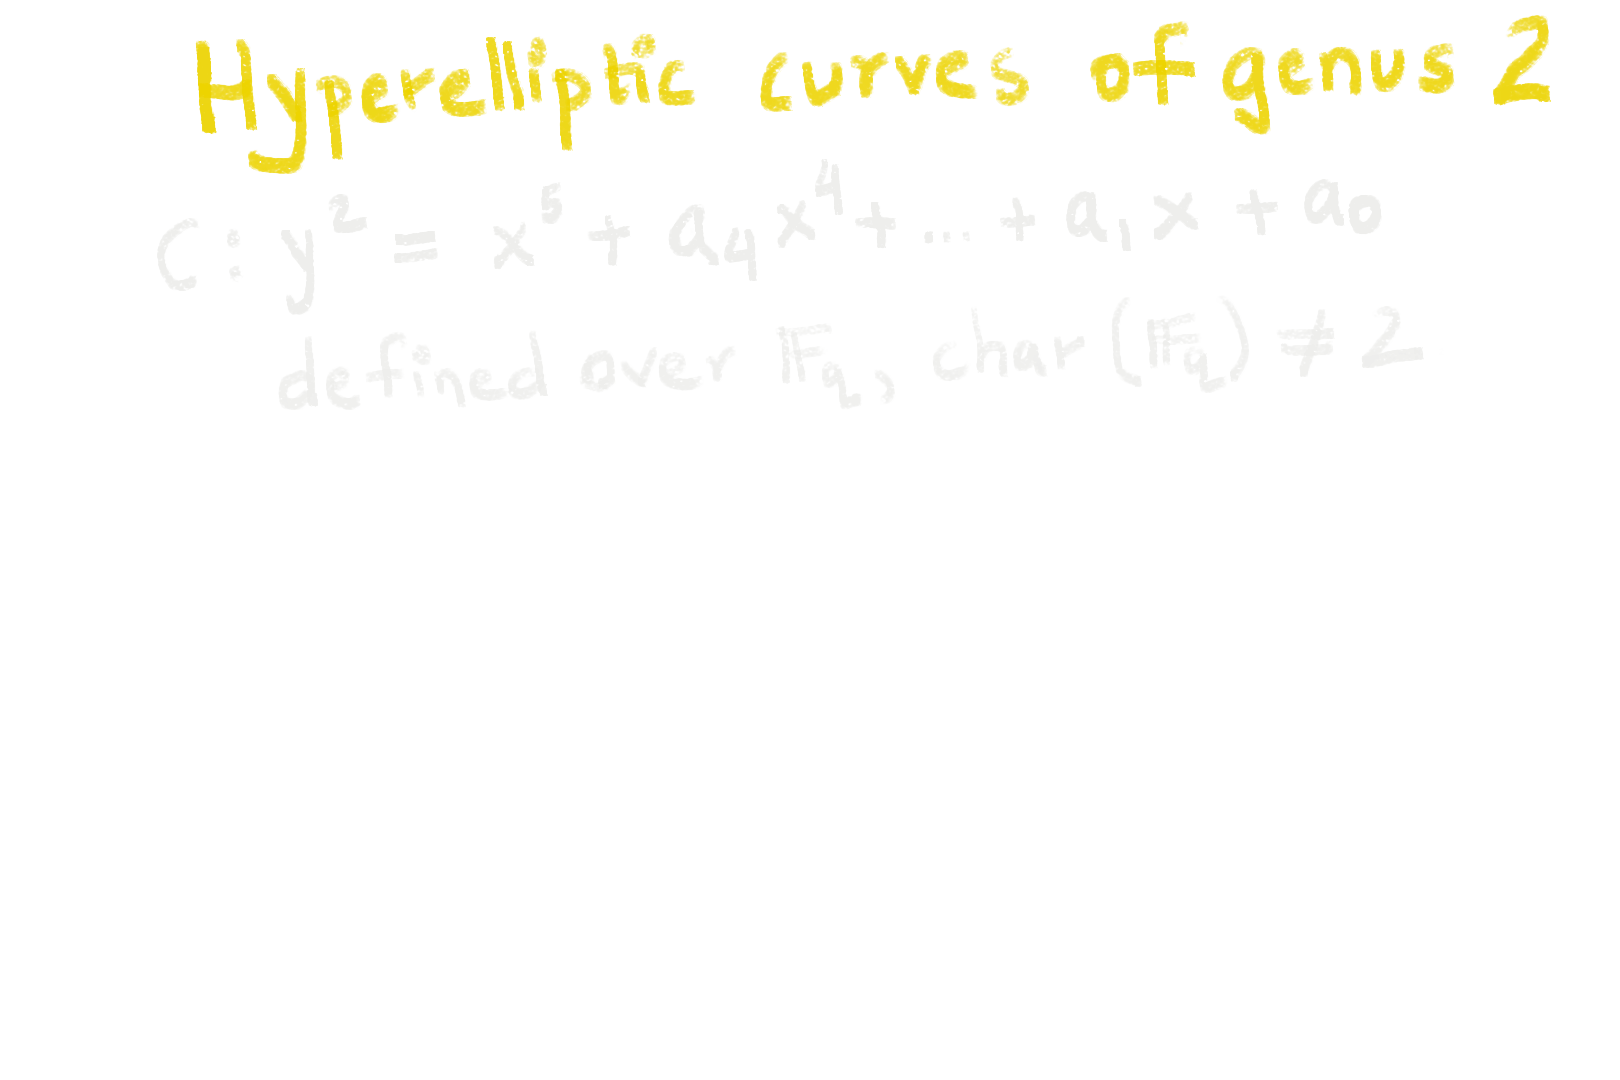 Hyperelliptic curves of genus 2
C: y² = x⁵ + a₄x⁴ + ... + a₁x + a₀
defined over 𝔽q, char(𝔽q) ≠ 2